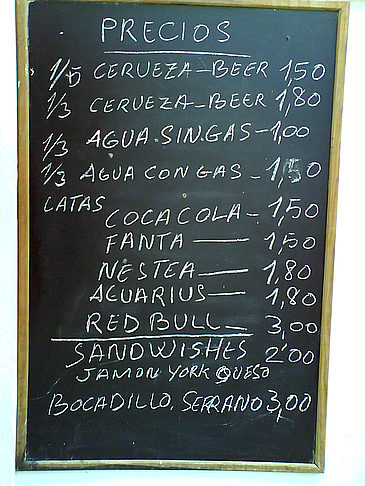 PRECIOS
1/5 CERVEZA-BEER 1,50
1/3 CERVEZA-BEER 1,80
1/3 AGUA.SINGAS-1,00
1/3 AGUA CON GAS - 1,50
LATAS
COCACOLA - 1,50
FANTA — 1,50
NESTEA — 1,80
ACUARIUS — 1,80
RED BULL — 3,00
SANDWISHES 2'00
JAMON YORK QUESO
BOCADILLO. SERRANO 3,00